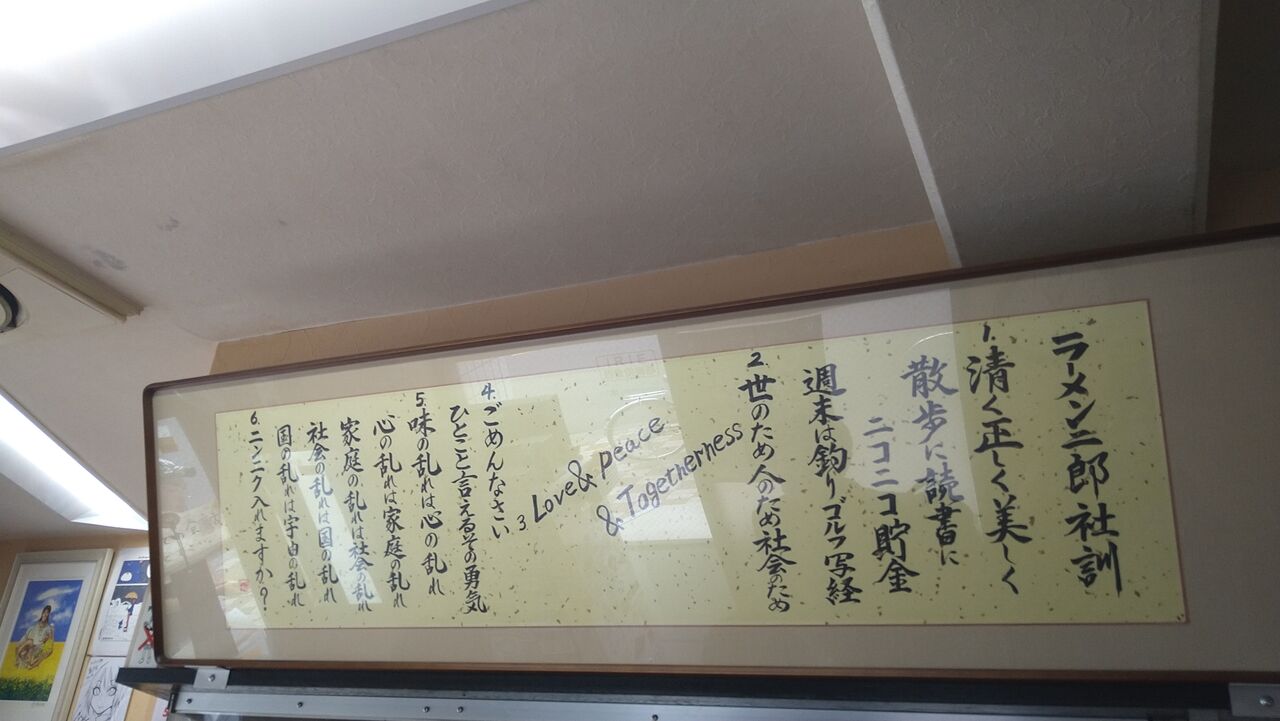 ラーメン二郎社訓
1. 清く正しく美しく
散歩に読書に
ニコニコ貯金
週末は釣りゴルフ写経
2. 世のため人のため社会のため
3 Love & peace
& Togetherness
4. ごめんなさい
ひとこと言えるその勇気
5. 味の乱れは心の乱れ
心の乱れは家庭の乱れ
家庭の乱れは社会の乱れ
社会の乱れは国の乱れ
国の乱れは宇宙の乱れ
6. ニンニク入れますか?